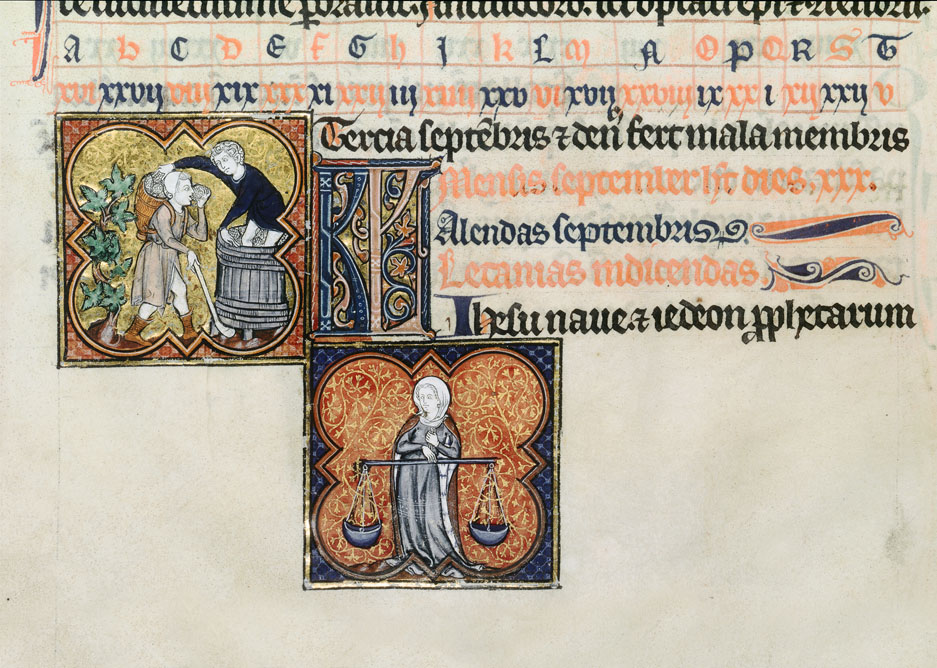 A b C D E F G h I k L M A O P Q R S T
xvi xxvij viii xix xxx xi xxij iij xiiij xxv vi xvij xxviij ix xx i xij xxij v
Tercia septẽbris ⁊ den9 fert mala membris
Mensis september ht dies. xxx.
KL Alendas septembris
Letanias indicendas,
Ihesu naue. ⁊ iedeon pphetarum